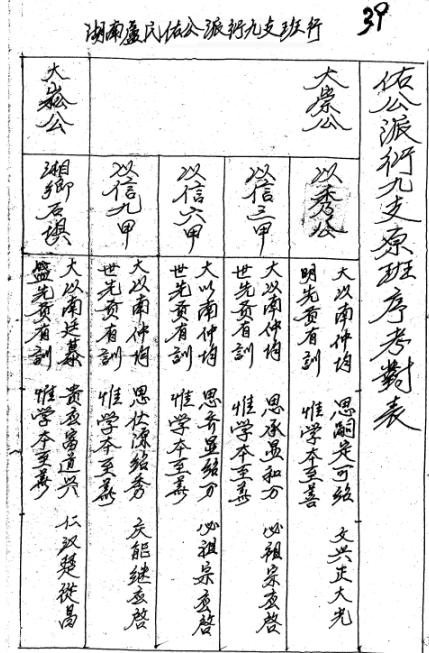 湖南盧氏佑公派衍九支班行
39
佑公派衍九支原班序考對表
大崇公
以秀公
大以南仲均 思嗣定可紹 文兴正大光
明先贡有訓 惟学本至善
以信三甲
大以南仲均 思承显和万 必祖宗应啓
世先贡有訓 惟学本至善
以信六甲
大以南仲均 思齐显紹万 必祖宗应啓
世先贡有訓 惟学本至善
以信九甲
大以南仲均 思伏深紹秀 庆能继应啓
世先贡有訓 惟学本至善
大崧公
湘鄉石埧
大以南廷慕 贵应富道兴 仁汉楚从昌
盛先贡有訓 惟学本至善